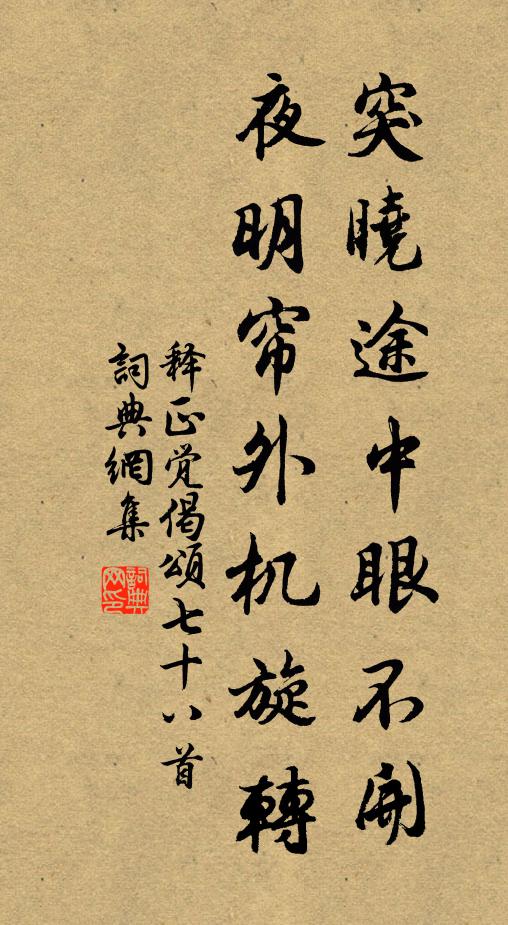 突曉途中眼不開
夜明帘外机旋轉
释正觉偈頌七十八首
詞典網集
詞典网印